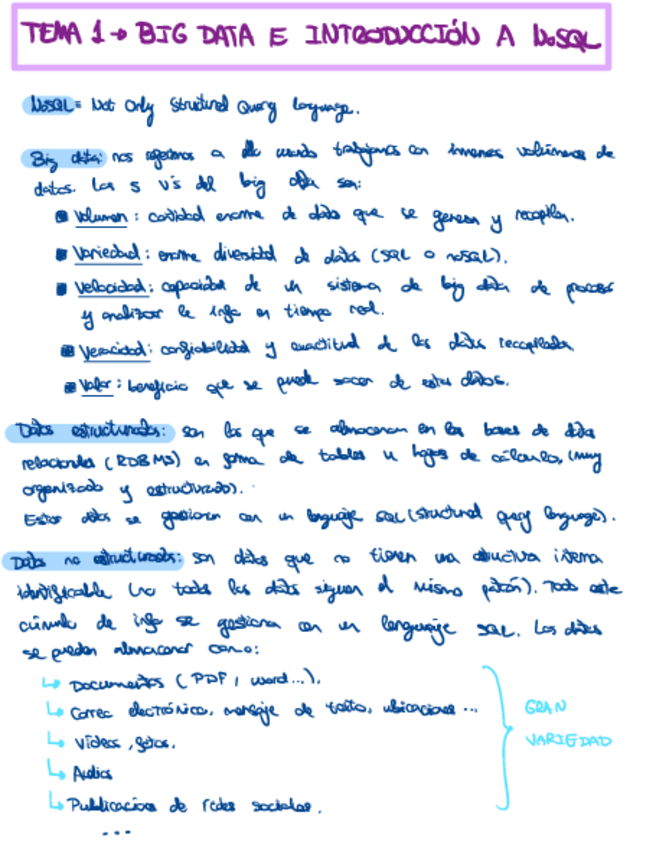 TEMA 1 → BIG DATA E INTRODUCCIÓN A NoSQL
NoSQL = Not Only Structured Query Language.
Big data: nos referimos a ello cuando trabajamos con inmensos volúmenes de
datos. Las 5 v's del big data son:
Volumen: cantidad enorme de datos que se generan y recopilan.
Variedad: enorme diversidad de datos (SQL o noSQL).
Velocidad: capacidad de un sistema de big data de procesar
y analizar la info en tiempo real.
Veracidad: confiabilidad y exactitud de los datos recopilados
Valor: beneficio que se puede sacar de estos datos.
Datos estructurados: son los que se almacenan en las bases de datos
relacionales (RDBMS) en forma de tablas u hojas de cálculo, (muy
organizado y estructurado).
Estos datos se gestionan con un lenguaje SQL (structured query language).
Datos no estructurados: son datos que no tienen una estructura interna
identificable (no todos los datos siguen el mismo patrón). Todo este
cúmulo de info se gestiona con un lenguaje SQL. Los datos
se pueden almacenar como:
↳ Documentos (PDF, word...).
↳ Correo electrónico, mensaje de texto, ubicaciones ...
↳ Vídeos, fotos.
↳ Audios
↳ Publicaciones de redes sociales.
...
GRAN
VARIEDAD